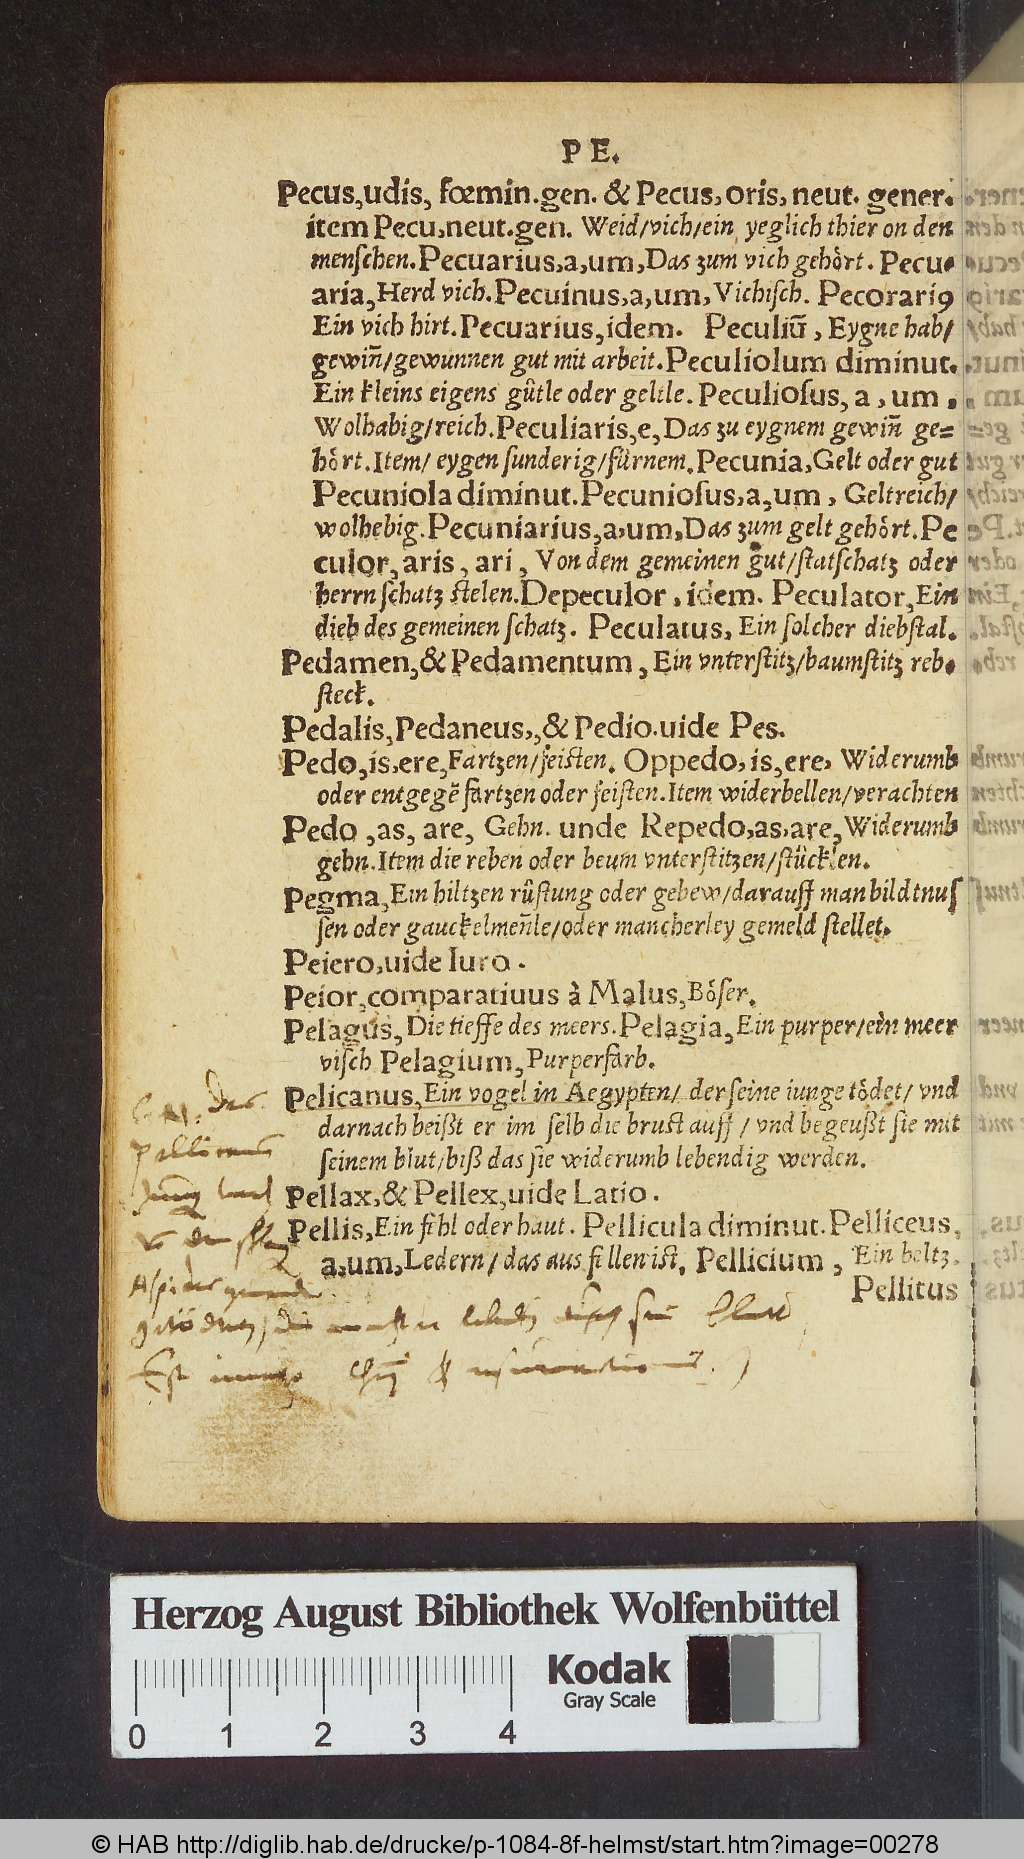 P E.
Pecus,udis, fœmin.gen. & Pecus,oris, neut. gener.
item Pecu,neut.gen. Weid/vich/ein yeglich thier on den
menschen.Pecuarius,a,um,Das zum vich gehôrt. Pecu
aria,Herd vich.Pecuinus,a,um,Vichisch. Pecorariꝰ
Ein vich hirt.Pecuarius,idem. Peculiũ, Eygne hab/
gewiñ/gewunnen gut mit arbeit.Peculiolum diminut.
Ein kleins eigens gûtle oder geltle.Peculiosus, a, um,
Wolhabig/reich.Peculiaris,e,Das zu eygnem gewiñ ge=
hôrt.Item/ eygen sunderig/fûrnem.Pecunia,Gelt oder gut
Pecuniola diminut.Pecuniosus,a,um, Geltreich/
wolhebig.Pecuniarius,a,um,Das zum gelt gehôrt.Pe
culor,aris, ari, Von dem gemeinen gut/statschatz oder
herrn schatz stelen.Depeculor,idem. Peculator,Ein
dieb des gemeinen schatz. Peculatus, Ein solcher diebstal.
Pedamen,& Pedamentum, Ein vnterstitz/baumstitz reb.
steck.
Pedalis,Pedaneus,,& Pedio.uide Pes.
Pedo,is,ere,Fartzen/feisten. Oppedo,is,ere, Widerumb
oder entgegẽ fartzen oder feisten.Item widerbellen/verachten
Pedo,as, are, Gehn. unde Repedo,as,are,Widerumb
gehn.Item die reben oder beum vnterstitzen/stücklen.
Pegma,Ein hiltzen rûstung oder gebew/darauff man bildtnus
sen oder gauckelmeñle/oder mancherley gemeld stellet.
Peiero,uide Iuro.
Peior,comparatiuus à Malus,Bôser.
Pelagus,Die tieffe des meers.Pelagia,Ein purper/ein meer
visch Pelagium,Purperfarb.
Pelicanus,Ein vogel in Aegypten/ der seine iunge tôdet/ vnd
darnach beißt er im selb die brust auff/ vnd begeußt sie mit
seinem blut/biß das sie widerumb lebendig werden.
Pellax,& Pellex,uide Latio.
Pellis,Ein fihl oder haut. Pellicula diminut.Pelliceus,
a,um,Ledern/das aus fillen ist. Pellicium, Ein beltz.
Pellitus
Herzog August Bibliothek Wolfenbüttel
Kodak
Gray Scale
0 1 2 3 4
© HAB http://diglib.hab.de/drucke/p-1084-8f-helmst/start.htm?image=00278